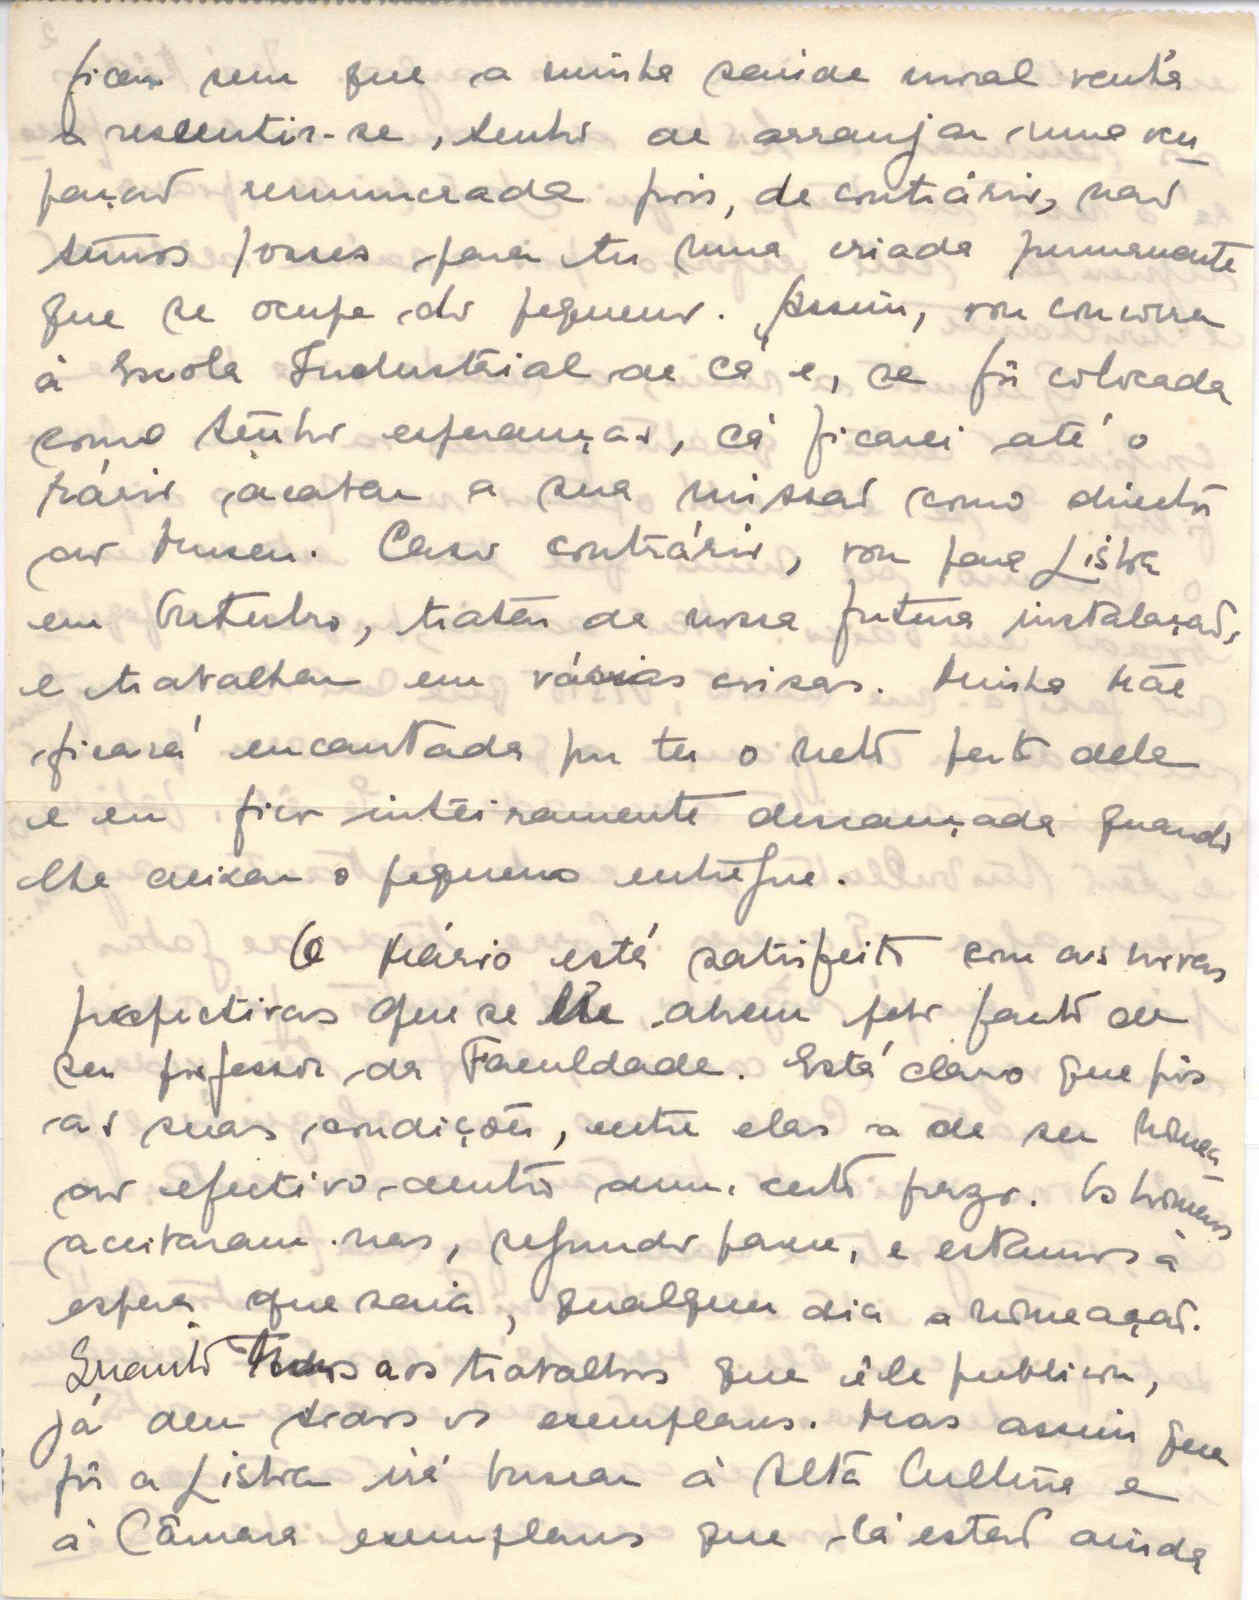 ficar sem que a minha saúde moral venha
a ressentir-se, tenho de arranjar uma ocu_
pação remunerada pois, de contrário, não
temos posses para ter uma criada permanente
que se ocupe do pequeno. Assim, vou concorrer
à Escola Industrial de cá e, se fôr colocada
como tenho esperanças, cá ficarei até o
Mário acabar a sua missão como director
do Museu. Caso contrário, vou para Lisboa
em Outubro, tratar da nossa futura instalação,
e trabalhar em várias coisas. Minha Mãe
ficará encantada por ter o neto perto dela
e eu fico inteiramente descançada quando
lhe deixar o pequeno entregue.
O Mário está satisfeito com as novas
perspectivas que se lhe abrem pelo facto de
ser professor da Faculdade. Está claro que pôs
as suas condições, entre elas a de ser nomea_
do efectivo dentro dum certo prazo. Os homens
aceitaram-nas, segundo parece, e estamos à
espera que saia, qualquer dia a nomeação.
Quanto aos trabalhos que êle publicou,
já deu todos os exemplares. Mas assim que
fôr a Lisboa irá buscar à Alta Cultura e
à Câmara exemplares que lá estão ainda